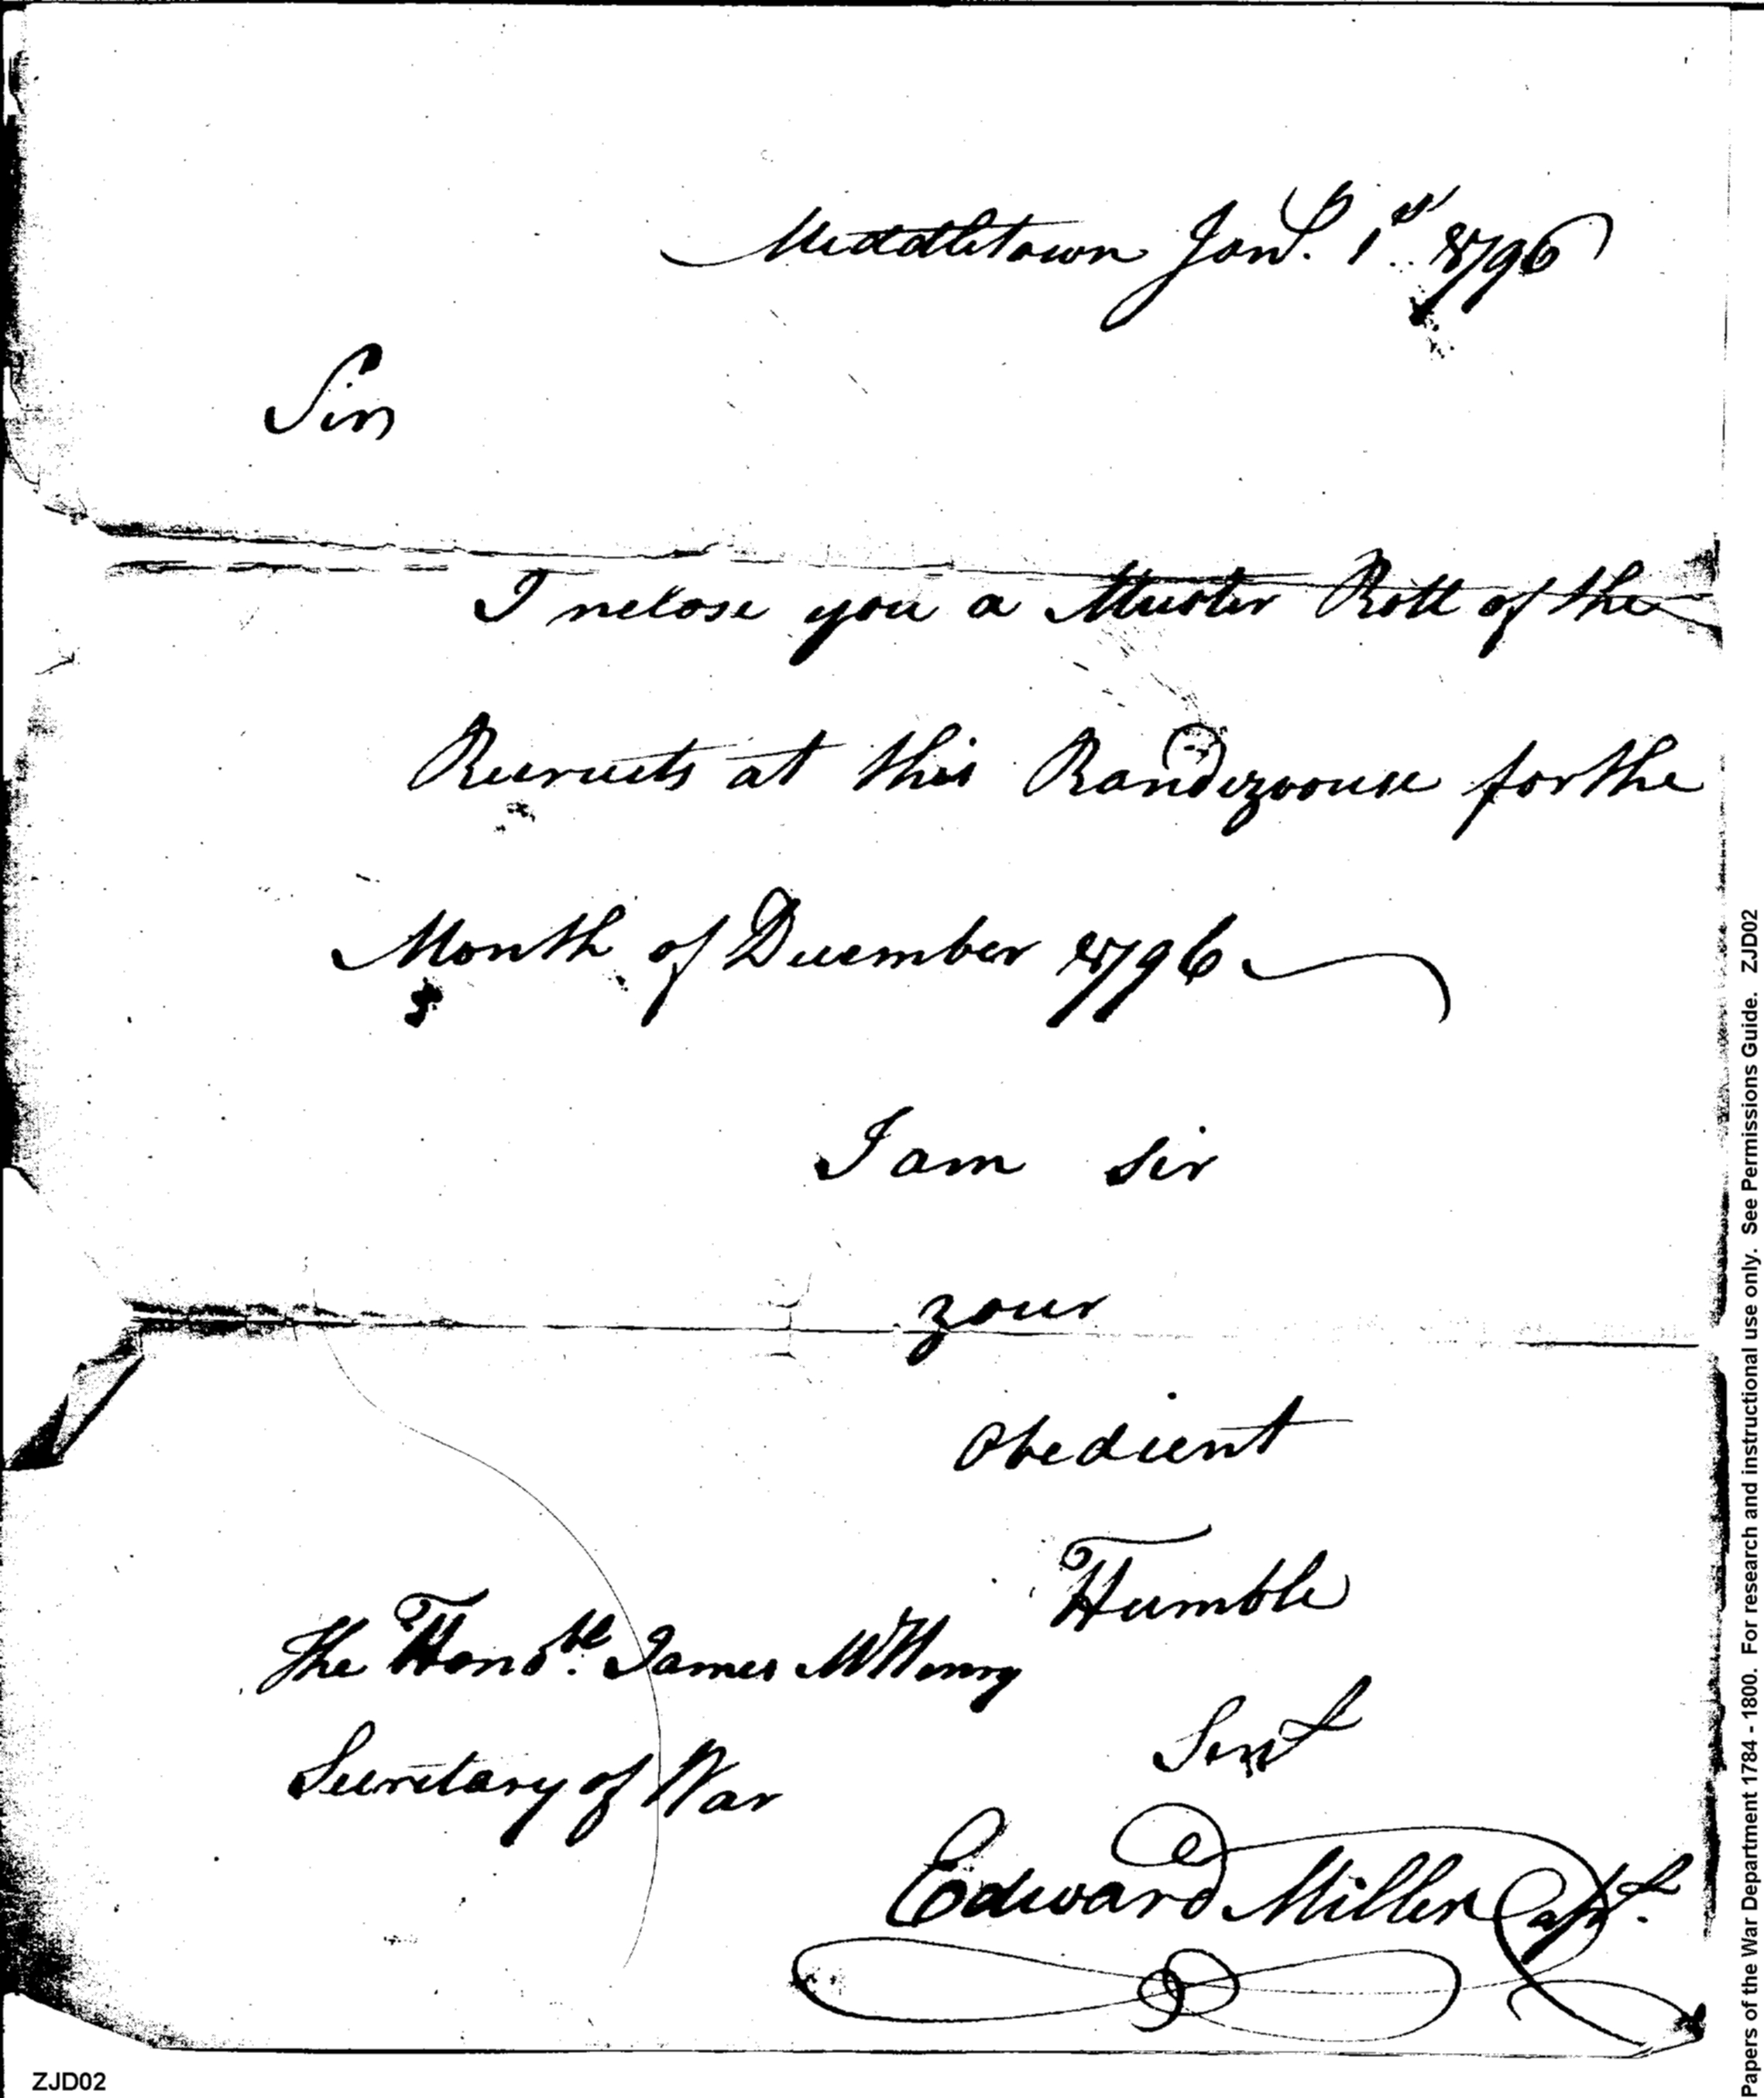 Middletown Jany. 1st 1796
Sir
I nclose you a Muster Roll of the
Recruits at this Randezvouse for the
Month of December 1796
I am sir
your
Obedient
Humble
The Honobl. James McHenry
Servt
Secretary of War
Edward Miller Capt.
ZJD02
Papers of the War Department 1784 - 1800. For research and instructional use only. See Permissions Guide. ZJD02